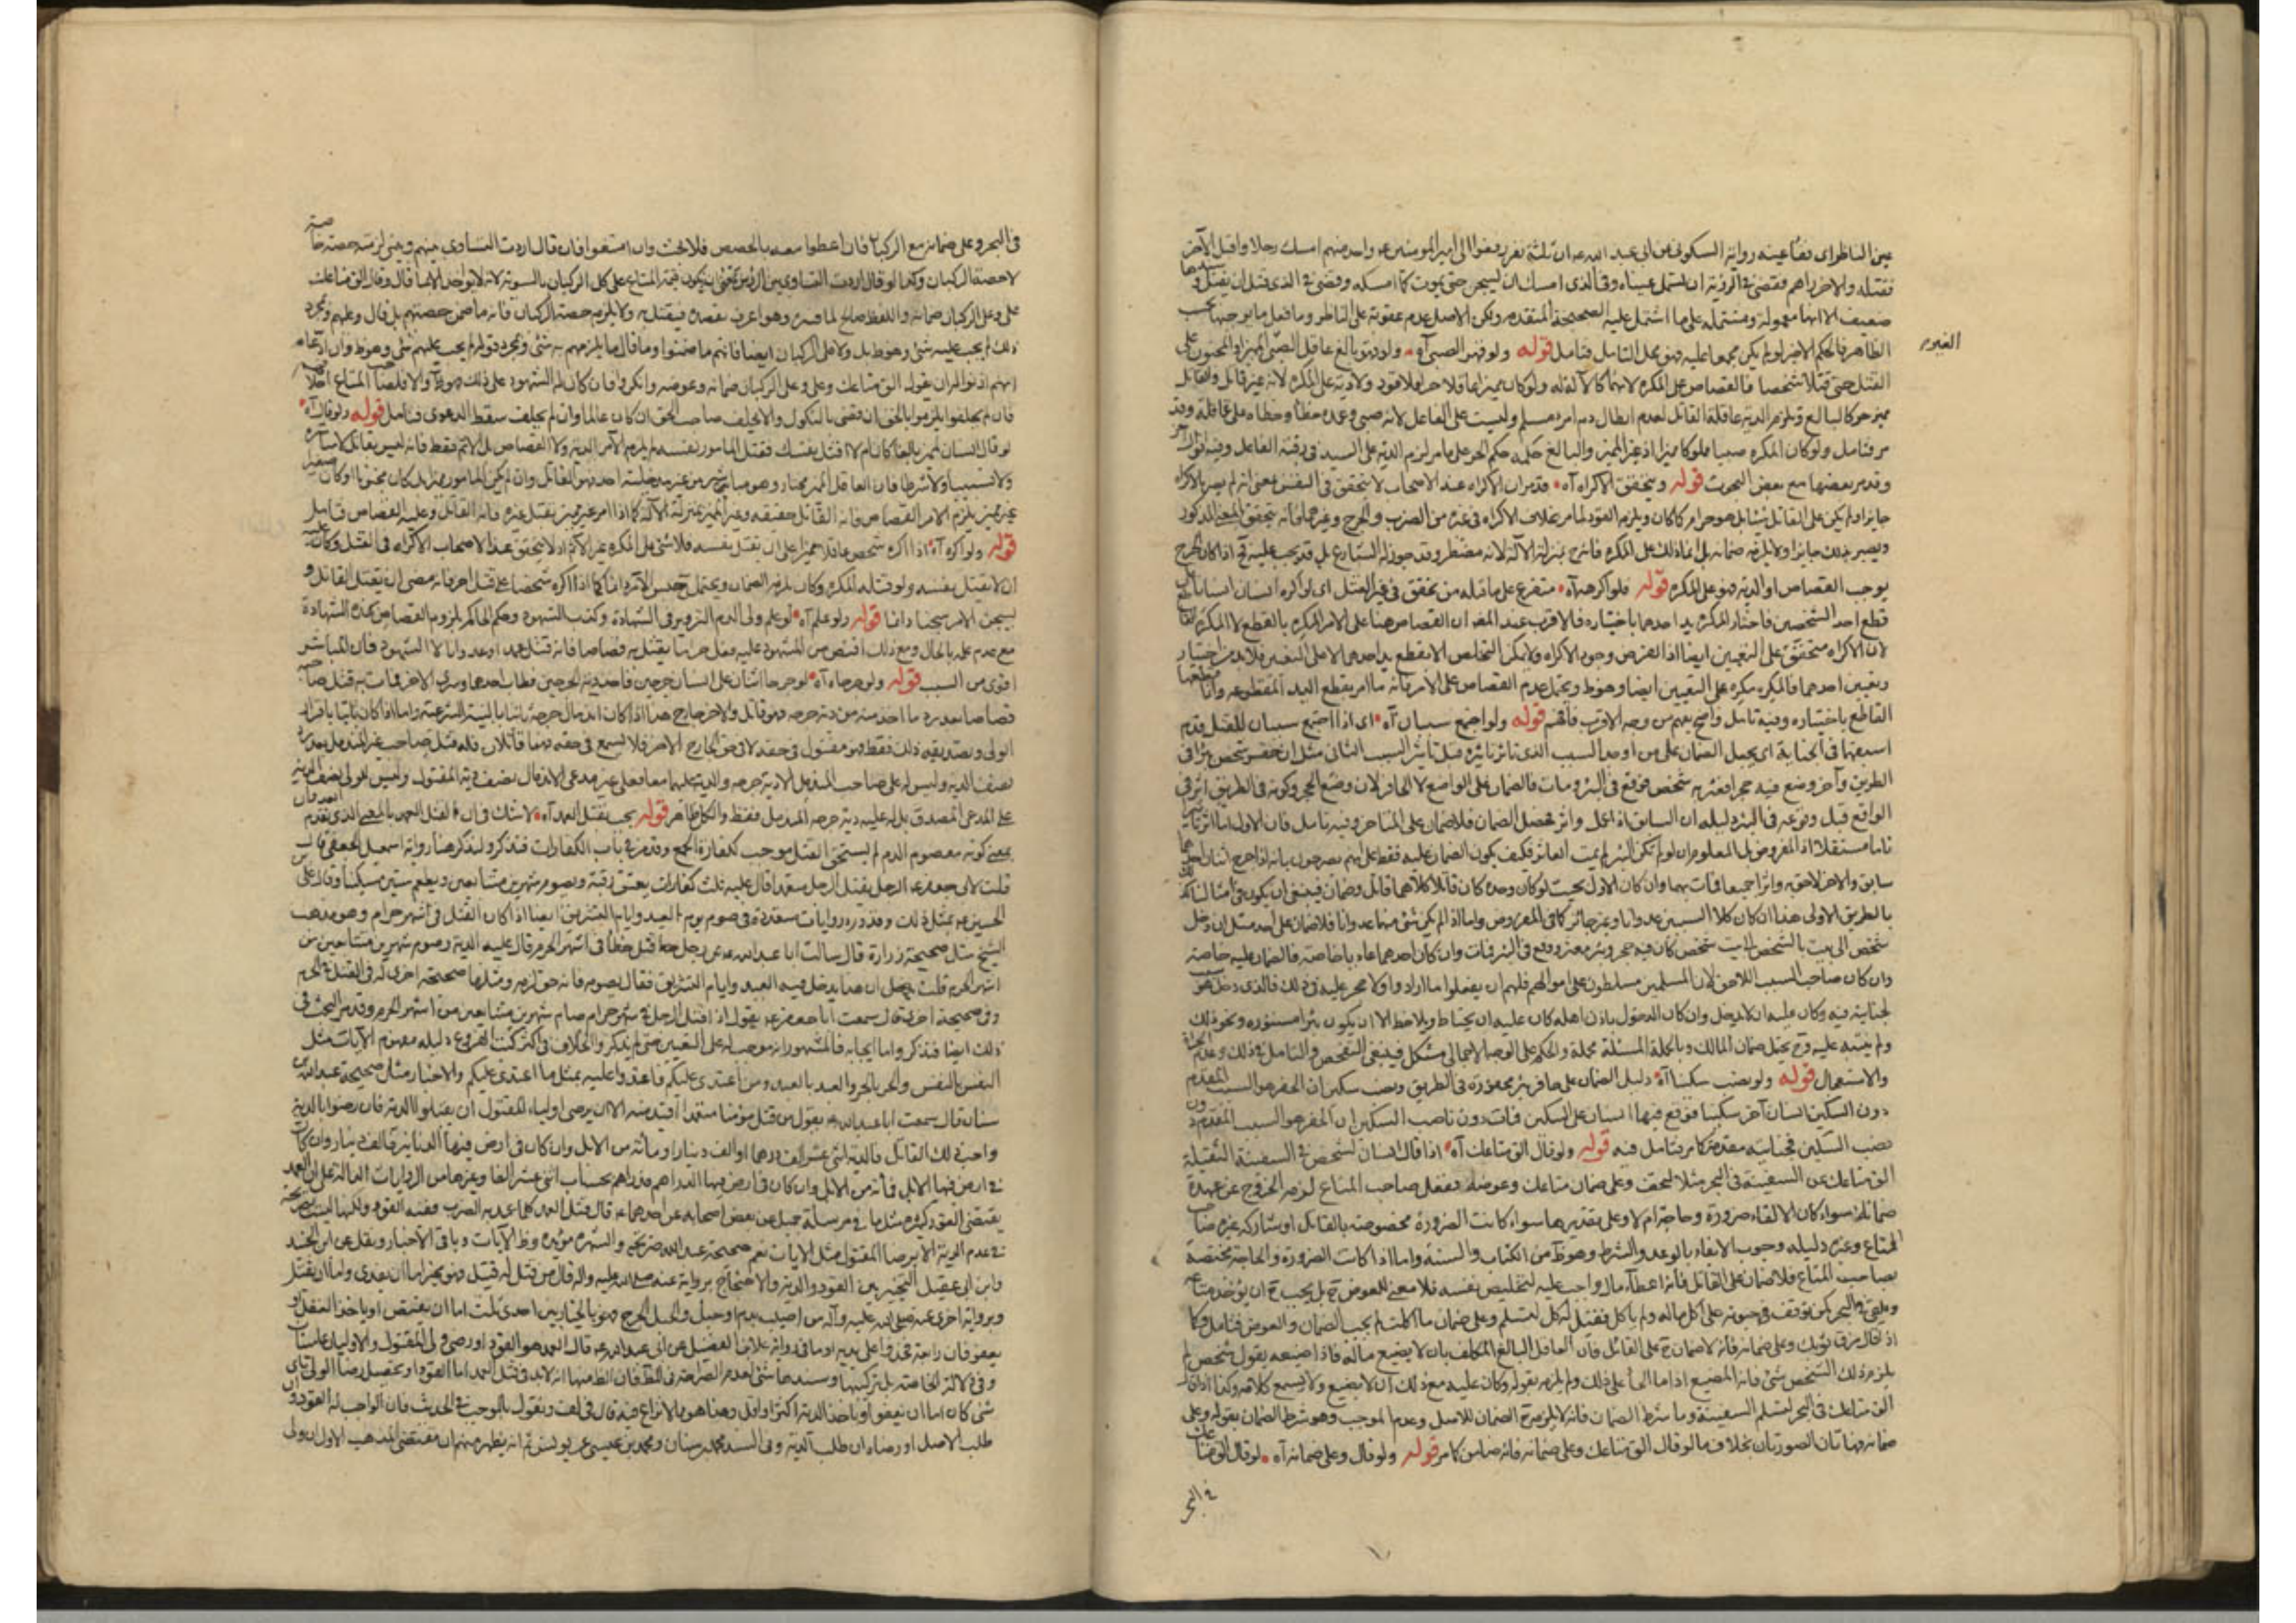 عين الناظر اى فقأ عينه رواية السكونى عن ابى عبد الله ع ان ثلثة نفر رفعوا الى امير المؤمنين ع واحد منهم امسك رجلا واقبل الآخر
فقتله والاخر يراهم فقضى فى الرؤية ان تسمل عيناه وفى الذى امسك ان يسجن حتى يموت كما امسكه وقضى فى الذى قتل ان يقتل
ضعيف الا انها معمولة ومشتملة على ما اشتمل عليه الصحيحة المتقدمة ولكن الاصل عدم عقوبة على الناظر وما فعل ما يوجبها
الظاهر فالحكم الاخير لو لم يكن مجمعا عليه فهو محل التأمل فتأمل قوله ولو قهر الصبى آه
القتل حتى قتلا شخصا فالقصاص على المكره لانهما كالآلة له ولو كان مميزا عاقلا حرا فلا قود ولا دية على المكره لانه غير قاتل والقاتل
مميز حر كالبالغ ويلزم الدية عاقلة القاتل لعدم ابطال دم امرء مسلم وليست على الفاعل لانه صبى وعمده خطأ وخطاءه على عاقلة وقد
مر فتأمل ولو كان المكره صبيا مملوكا مميزا اذ غير المميز والبالغ حكمه حكم الحر على ما مر لزم الدية على السيد فى رقبة الفاعل وفيه
وقد مر بعضها مع بعض البحوث قوله ويتحقق الاكراه آه قد مر ان الاكراه عند الاصحاب لا يتحقق فى النفس بمعنى انه لم يصر بالاكراه
جايزا ولم يكن على القاتل شئ بل هو حرام كما كان ويلزمه القود لما مر بخلاف الاكراه فى غيره من الضرب والجرح وغيرهما فانه يتحقق المعنى المذكور
ويصير بذلك جايزا ولا يلزمه ضمانه بل انما ذلك على المكره فانه ح بمنزلة الآلة لانه مضطر وقد جوز له الشارع بل قد يجب عليه ح اذا كان الجرح
يوجب القصاص او الدية فهو على المكره قوله فلو اكرهه آه متفرع على ما قبله من تحقق فى غير القتل اى لو اكره انسان انسانا على
قطع احد الشخصين فاختار المكره يد احدهما باختياره فالاقرب عند المص ان القصاص هنا على الامر المكرِه بالقطع لا المكرَه
لان الاكراه متحقق على التعيين ايضا اذ الفرض وجود الاكراه ولا يمكن التخلص الا بقطع يد احدهما لا على التعيين فلا بد من اختيار
وتعيين احدهما فالمكره مكره على التعيين ايضا وهو ظ ويحتمل عدم القصاص على الامر فانه ما امر بقطع اليد المقطوعه وانما
القاطع باختياره وفيه تأمل واضح يعلم من وجه الاقرب فافهم قوله ولو اجتمع سببان آه اى اذا اجتمع سببان للقتل قدم
اسبقهما فى الجناية اى يحمل الضمان على من اوجد السبب الذى تاثر تاثيره قبل تأثير السبب الثانى مثل ان حفر شخص بئرا فى
الطريق وآخر وضع فيه حجرا فعثر به شخص فوقع فى البئر ومات فالضمان على الواضع لا الحافر لان وضع الحجر وكونه فى الطريق اثر فى
الواقع قبل وقوعه فى البئر دليله ان السابق اذا عمل واثر فحصل الضمان فلا ضمان على المتاخر وفيه تأمل فان الاول ما اثر تأثيرا
تاما مستقلا اذ المفروض بل المعلوم ان لو لم تكن البئر لم يمت العاثر فكيف يكون الضمان عليه فقط على انهم يصرحون بانه اذا جرح اثنان احدهما
سابق والاخر لاحق به واثرا جميعا فمات بهما وان كان الاول بحيث لو كان وحده كان قاتلا كلاهما قاتل وضمان فينبغى ان يكون فى امثالنا
بالطريق الاولى هذا ان كان كلا السببين عدوانا وغير جائز كما فى المفروض واما اذا لم يكن شئ منهما عدوانا فلا ضمان على احد مثل ان دخل
شخص الى بيت بالشخص لبيت شخص كان فيه حجر وبئر فعثر ووقع فى البئر فمات وان كان احدهما عاديا خاصة فالضمان عليه خاصة
وان كان صاحب السبب اللاحق لان المسلمين مسلطون على اموالهم فلهم ان يفعلوا ما ارادوا ولا حجر عليه فى ذلك فالذى دخل هو
لجنايته فيه وكان عليه ان لا يدخل وان كان الدخول باذن اهله كان عليه ان يحتاط ويلاحظ الا ان يكون بئرا مستوره ونحو ذلك
ولم ينبه عليه وح يحتمل ضمان المالك وبالجملة المسئلة مجملة والحكم على الوجه الاجمالى مشكل فينبغى التفحص والتأمل فى ذلك وعدم
والاستعمال قوله ولو نصب سكينا آه دليل الضمان على حافر بئر محفورة فى الطريق ونصب سكين ان الحفر هو السبب المقدم
دون السكين انسان آخر سكينا فوقع فيها انسان على السكين فمات دون ناصب السكين ان الحفر هو السبب المقدم دون
نصب السكين فجنايته مقدمة كما مر فتأمل فيه قوله ولو قال الق متاعك آه اذا قال انسان لشخص فى السفينة الثقيلة
الق متاعك عن السفينة فى البحر مثلا لتخف وعلى ضمان متاعك وعوضه ففعل صاحب المتاع لزمه الخروج عن عهدة
ضمانه سواء كان الالقاء ضرورة وحاجة ام لا وعلى تقديرها سواء كانت الضرورة مخصوصة بالقائل او شاركه غيره صاحب
المتاع وغيره دليله وجوب الايفاء بالوعد والشرط وهو ظ من الكتاب والسنة واما اذا كانت الضرورة والحاجة مختصة
بصاحب المتاع فلا ضمان على القائل فانه اعطاء مال واجب عليه لتخليص نفسه فلا معنى للعوض ح بل يجب ح ان يؤخذ متاعه
ويلقى فى البحر كمن توقف حيوته على اكل ماله ولم يأكل فقيل له كل لتسلم وعلى ضمان ما اكلت لم يجب الضمان والعوض فتأمل وكذا
اذ قال مزق ثوبك وعلى ضمانه فانه لا ضمان ح على القائل فان العاقل البالغ المكلف بان لا يضيع ماله فاذا ضيعه بقول شخص لم
يلزم ذلك الشخص شئ فانه المضيع اذ ما الجأه على ذلك ولم يلزمه بقوله وكان عليه مع ذلك ان لا يضيع ولا يسمع كلامه وكذا اذ قال
الق متاعك فى البحر لتسلم السفينة وما شرط الضمان فانه لا يلزمه ح الضمان للاصل وعدم الموجب وهو شرط الضمان بقوله وعلى
ضمانه فهاتان الصورتان بخلاف ما لو قال الق متاعك وعلى ضمانه فانه ضامن كما مر قوله ولو قال وعلى ضمانه آه لو قال الق متاعك
فى البحر
فى البحر وعلى ضمانه مع الركبان فان اعطوا معه بالحصص فلا بحث وان امتنعوا فان قال اردت التساوى بينهم وبينى لزمته حصته خاصة
لا حصة الركبان وكذا لو قال اردت التساوى
على وعلى الركبان ضمانه واللفظ صالح لما فسره وهو اعرف بقصده فيقبل منه ولا يلزمه حصة الركبان فانه ما ضمن حصتهم بل قال وعليهم وبمجرد
ذلك لم يجب عليه شئ وهو ظ بل ولا على الركبان ايضا فانهم ما ضمنوا وما قال ما يلزمهم به شئ وبمجرد قوله لم يجب عليهم شئ وهو ظ وان ادعاه
انهم اذنوا له ان يقول الق متاعك وعلى وعلى الركبان ضمانه وعوضه وانكروا فان كان له الشهود على ذلك فهو ظ والا فلصاحب المتاع احلافهم
فان لم يحلفوا يلزموا بالحق ان قضى بالنكول والا يحلف صاحب الحق ان كان عالما وان لم يحلف سقط الدعوى فتأمل قوله ولو قال آه
لو قال انسان لمميز بالغا كان ام لا اقتل نفسك فقتل المامور نفسه لم يلزم الآمر الدية ولا القصاص بل الاثم فقط فانه ليس بقاتل لا مباشرة
ولا تسبيبا ولا شرطا فان العاقل المميز مختار وهو مباشر
غير مميز يلزم الامر القصاص فانه القاتل حقيقه وغير المميز بمنزلة الآلة كما اذا امر غير مميز بقتل غيره فانه القاتل وعليه القصاص فتأمل
قوله ولو اكره آه اذا اكره شخص عاقلا مميزا على ان يقتل نفسه فلا شئ على المكره غير الاثم اذ لا يتحقق عند الاصحاب الاكراه فى القتل وكان عليه
ان لا يقتل نفسه ولو قتله المكره وكان يلزمه الضمان ويحتمل حبس الامر دائما كما اذا اكره شخصا على قتل اخر فانه مضى ان يقتل القاتل و
يسجن الامر سجنا دائما قوله ولو علم آه لو علم ولى الدم التزوير فى الشهادة وكذب الشهود وحكم الحاكم بلزوم القصاص بهذه الشهادة
مع عدم علمه بالحال ومع ذلك اقتص من المشهود عليه فعلى هذا يقتل به قصاصا فانه قتل عمدا وعدوانا لا الشهود فان المباشر
اقوى من السبب قوله ولو جرحاه آه لو جرحا اثنان على انسان جرحين فاحد من الجرحين فطاب احدهما وسرى الاخر فمات به قتل صاحبه
قصاصا بعد رد ما اخذ منه من دية جرحه فهو قاتل والاخر جارح هذا اذا كان اندمال جرحه ثابتا بالبينة الشرعية واما اذا كان ثابتا باقرار
الولى وتصديقه ذلك فقط فهو مقبول فى حقه لا فى حق الجارح الاخر فلا يسمع فى حقه فهما قاتلان فله قتل صاحب غير المندمل بعد رد
نصف الدية وليس له على صاحب المندمل الا دية جرحه والدية عليهما معا فعلى غير مدعى الاندمال نصف دية المقتول وليس للولى نصف الدية
على المدعى المصدق بل له عليه دية جرحه المندمل فقط والكل ظاهر قوله يجب بقتل العمد آه لا شك فى ان القتل العمد بالمعنى الذى تقدم
بمعنى كونه معصوم الدم لم يستحق القتل موجب كفارة الجمع وقد مر فى باب الكفارات فتذكر ولنذكر هنا رواية اسمعيل الجعفى قال
قلت لابى جعفر ع الرجل يقتل الرجل متعمدا قال عليه ثلث كفارات يعتق رقبة ويصوم شهرين متتابعين ويطعم ستين مسكينا وقال على
الحسين ع بمثل ذلك وقد ورد روايات متعددة فى صوم يوم العيد وايام التشريق ايضا اذا كان القتل فى اشهر حرام وهو مذهب
الشيخ مثل صحيحة زرارة قال سالت ابا عبد الله ع عن رجل قتل خطأ فى اشهر الحرم قال عليه الدية وصوم شهرين متتابعين من
اشهر الحرم قلت يدخل ان هذا يدخل فيه العيد وايام التشريق فقال يصومه فانه حق لزمه ومثلها صحيحته اخرى له فى القتل فى الحرم
وفى صحيحة اخرى قال سمعت ابا جعفر ع يقول اذا قتل الرجل فى شهر حرام صام شهرين متتابعين من اشهر الحرم وقد مر البحث فى
ذلك ايضا فتذكر واما ايجابه فالمشهور انه موجب له على التعيين حتى لم يذكروا الخلاف فى اكثر كتب الفروع دليله مفهوم الآيات مثل
النفس بالنفس والحر بالحر والعبد بالعبد ومن اعتدى عليكم فاعتدوا عليه بمثل ما اعتدى عليكم والاخبار مثل صحيحة عبد الله بن
سنان قال سمعت ابا عبد الله ع يقول من قتل مؤمنا متعمدا اقيد منه الا ان يرضى اولياء المقتول ان يقبلوا الدية فان رضوا بالدية
واحب ذلك القاتل فالدية اثنى عشر الف درهم او الف دينار او مائة من الابل وان كان فى ارض فيها الدنانير فالف دينار وان كان
فى ارض فيها الابل فمائة من الابل وان كان فى ارض فيها الدراهم فدراهم بحساب اثنى عشر الفا وغيرها من الروايات الدالة على ان العمد
يقتضى القود كثيرة مثل ما فى مرسلة جميل عن بعض اصحابه عن احدهما ع قال قتل العمد كلما عمد به الضرب ففيه القود ولكنها ليست صريحة
فى عدم الدية الا برضا المقتول مثل الايات نعم صحيحة عبد الله صريحة والشهرة مؤيدة وظ الآيات وباقى الاخبار ونقل عن ابن الجنيد
وابن ابى عقيل التخيير بين القود والدية والاحتجاج برواية عنه صلى الله عليه وآله قال من قتل له قتيل فهو بخير اما ان يفدى واما ان يقتل
وبرواية اخرى عنه صلى الله عليه وآله من اصيب بدم او خبل والخبل الجرح فهو بالخيار بين احدى ثلث اما ان يقتص او ياخذ العقل او
يعفو فان رابعة فخذوا على يديه وما فى رواية علا بن الفضيل عن ابى عبد الله ع قال العمد هو القود او رضى ولى المقتول والاوليان
وفى دلالة الخاصة بل تركيبها وسندها شئ لعدم الصراحة فى اللفظ فان الظ منها انه لا بد فى قتل العمد اما القود او تحصيل رضا الولى باى
شئ كان اما ان يعفو او ياخذ الدية اكثر او اقل وهذا هو ما لا نزاع فيه قال فى لف ونقول بالموجب فى الحديث فان الواجب له القود
طلب الاصل او رضاه ان طلب الدية وفى السند محمد بن سنان ومحمد بن عيسى عن يونس ثم انه يظهر منهم ان مقتضى المذهب الاول ان ولى